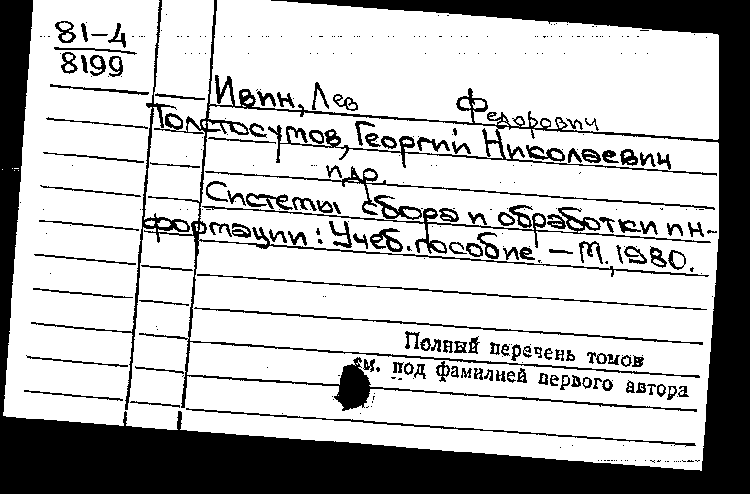 81-4
8199
Ивин, Лев Федорович
Толстосумов, Георгий Николаевич
и др.
Системы сбора и обработки ин-
формации: Учеб. пособие. — М., 1980.
Полный перечень томов
см. под фамилией первого автора